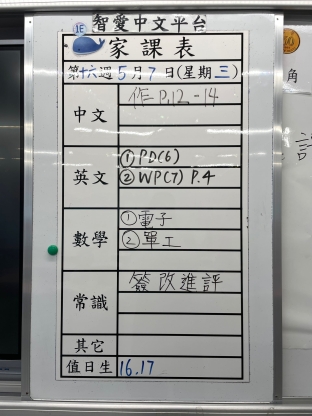 1E
智愛中文平台
家課表
第十六週5月7日(星期三)
中文 作P.12-14
英文 ①PD(6)
②WP(7) P.4
數學 ①電子
②單工
常識 簽改進評
其它
值日生 16.17
角